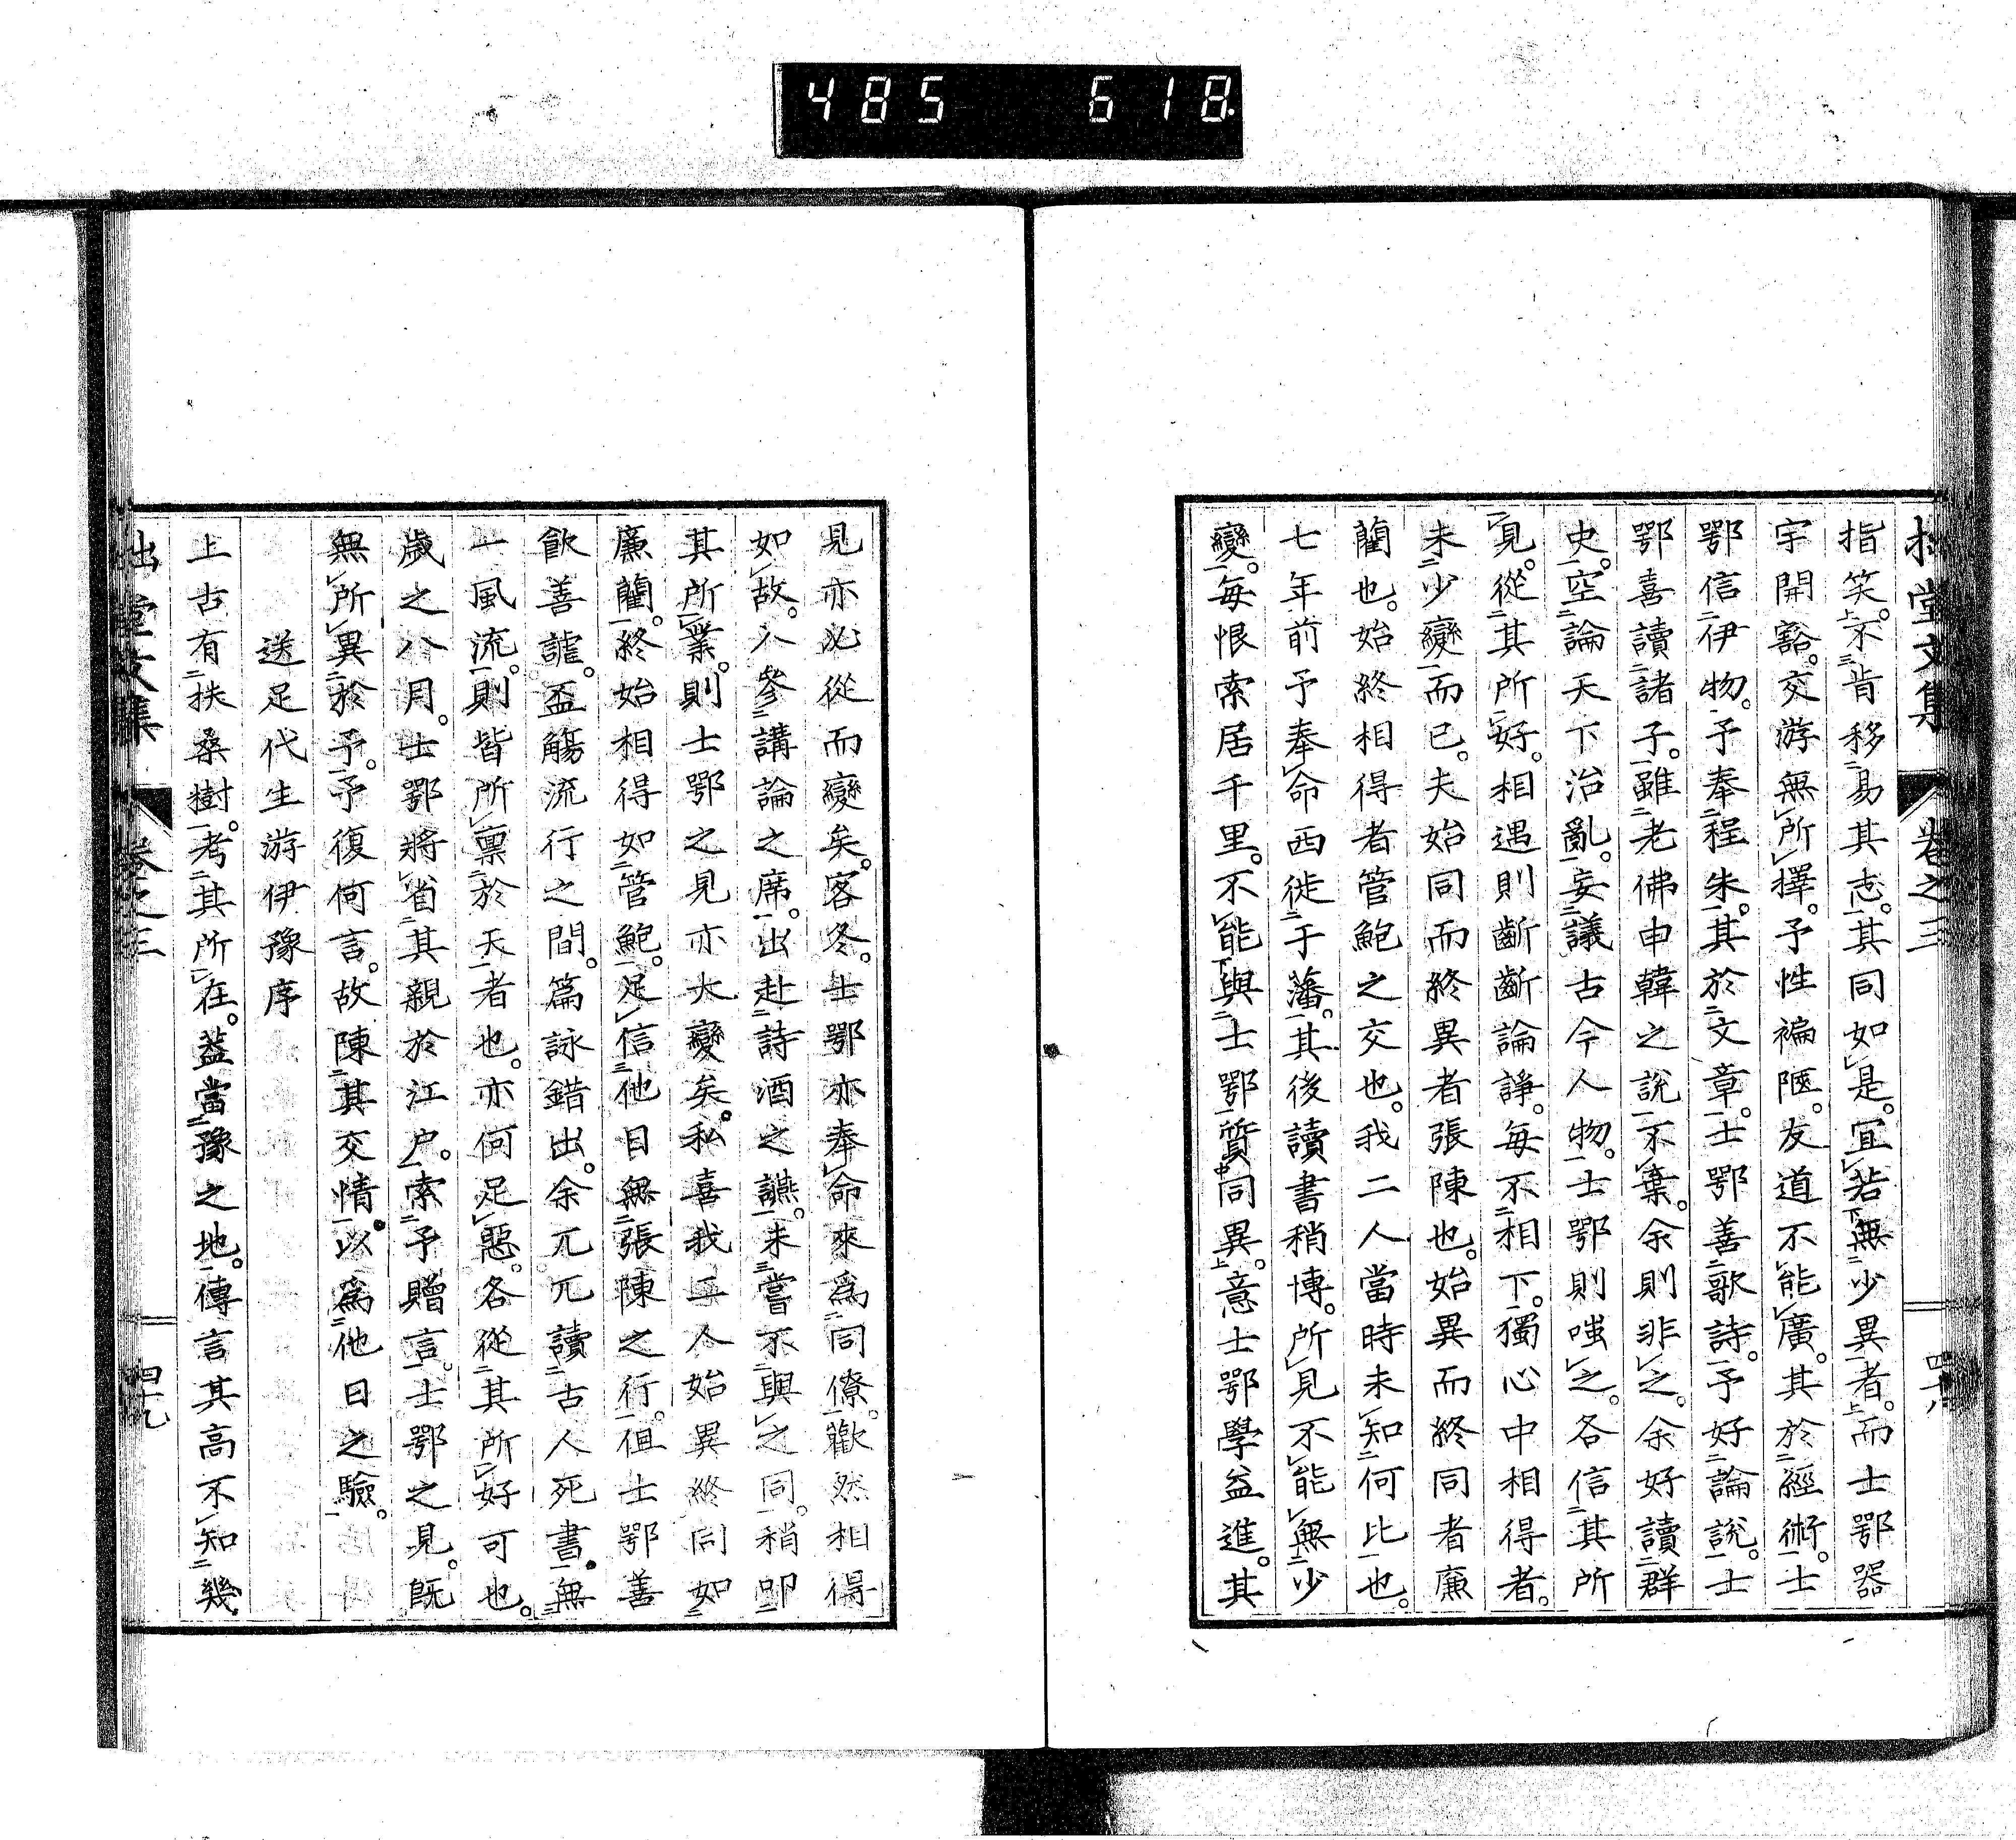 485 618
拙堂文集 卷之三 四十八
指笑。不肯移易其志。其同如是。宜若無少異者。而士鄂器
宇開豁。交游無所擇。予性褊陋。友道不能廣。其於經術。士
鄂信伊物。予奉程朱。其於文章。士鄂善歌詩。予好論說。士
鄂喜讀諸子。雖老佛申韓之說不棄。余則非之。余好讀群
史。空論天下治亂。妄議古今人物。士鄂則嗤之。各信其所
見。從其所好。相遇則齗齗論諍。每不相下。獨心中相得者。
未少變而已。夫始同而終異者張陳也。始異而終同者廉
藺也。始終相得者管鮑之交也。我二人當時未知何比也。
七年前予奉命西徙于藩。其後讀書稍博。所見不能無少
變。每恨索居千里。不能與士鄂質同異。意士鄂學益進。其
見亦必從而變矣。客冬。士鄂亦奉命來為同僚。歡然相得
如故。入參講論之席。出赴詩酒之讌。未嘗不與之同。稍叩
其所業。則士鄂之見亦大變矣。私喜我二人始異終同如
廉藺。終始相得如管鮑。足信他日無張陳之行。但士鄂善
飲善謔。盃觴流行之間。篇詠錯出。余兀兀讀古人死書。無
一風流。則皆所稟於天者也。亦何足惡。各從其所好可也。
歲之八月。士鄂將省其親於江戶。索予贈言。士鄂之見。既
無所異於予。予復何言。故陳其交情。以為他日之驗。
送足代生游伊豫序
上古有扶桑樹。考其所在。蓋當豫之地。傳言其高不知幾
拙堂文集 卷之三 四十九